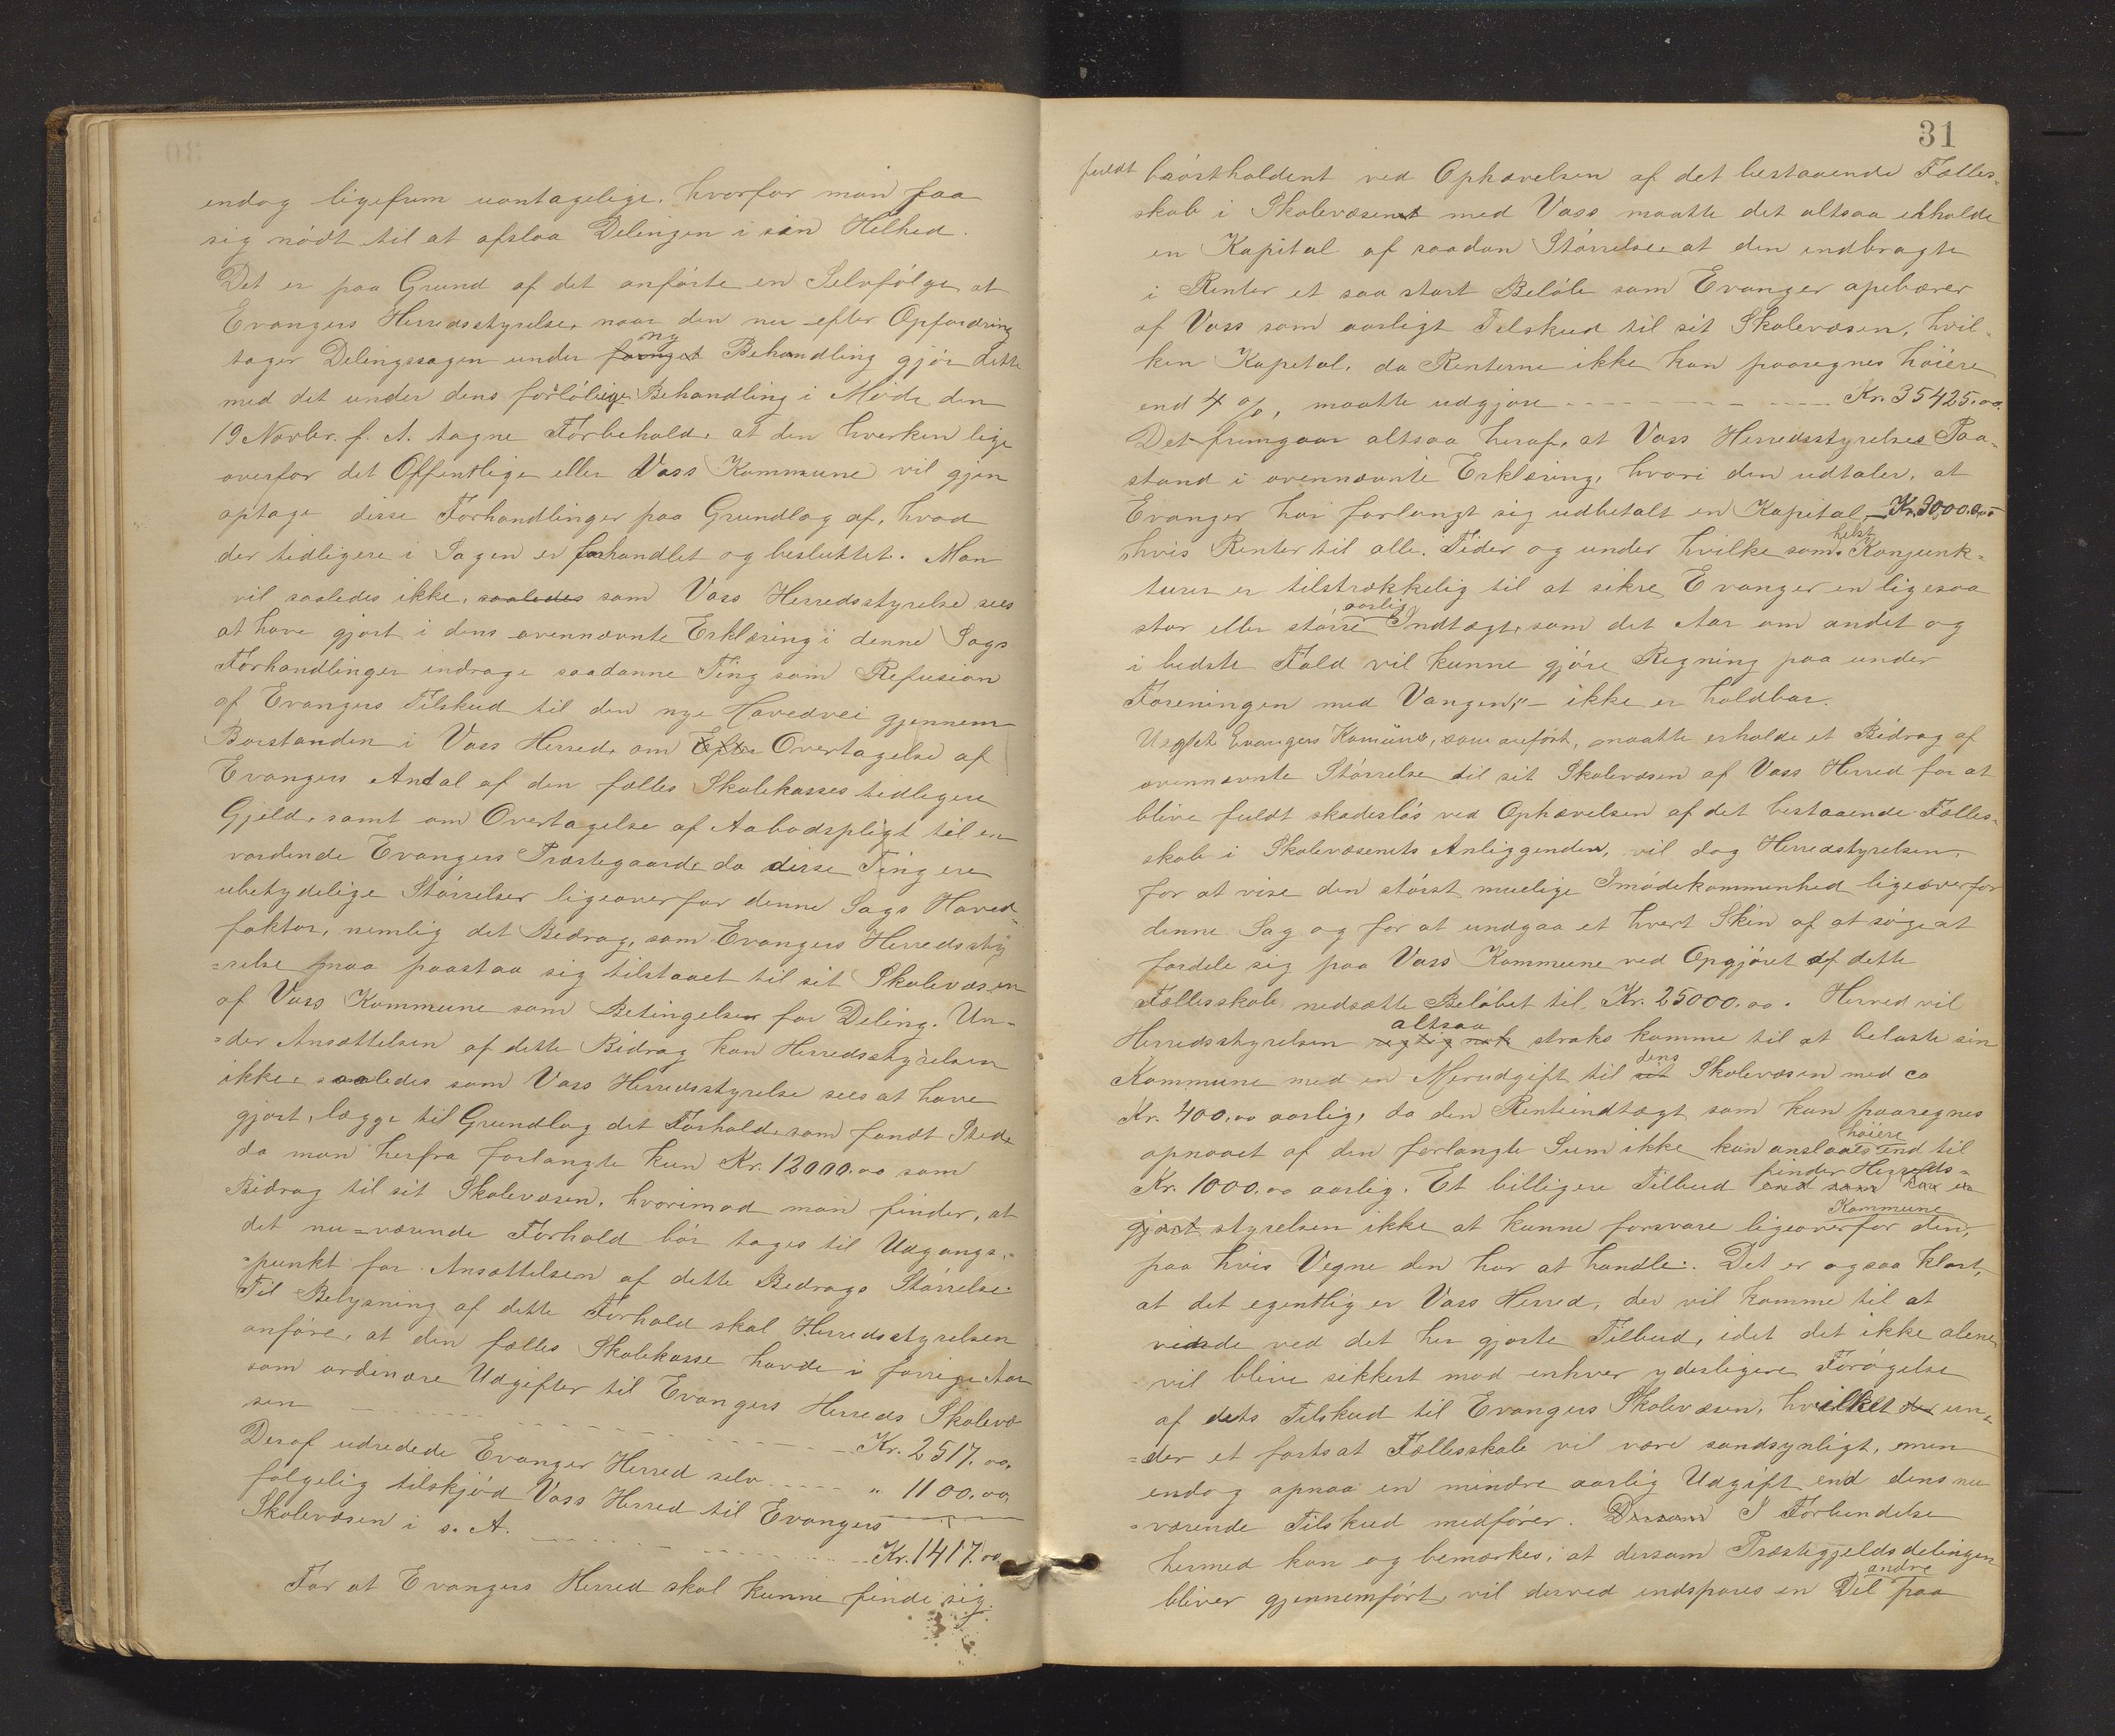 endog ligefrem uantagelige, hvorfor man faa
sig nödt til at afslaa Delingen i sin Helhed.
Det er paa Grund af det anförte en Selvfölge, at
Evangers Herredsstyrelse, naar den nu efter Opfordring
tager Delingssagen under fornyet ny Behandling gjör dette
med det under dens forlöbige Behandling i Möde den
19 Novbr. f. A. tagne Forbehold, at den hverken lige
overfor det Offentlige eller Voss Kommune vil gjen
optage disse Forhandlinger paa Grundlag af, hvad
der tidligere i Sagen er forhandlet og besluttet. Man
vil saaledes ikke, saaledes som Voss Herredsstyrelse sees
at have gjort i dens ovennævnte Erklæring i denne Sags
Forhandlinger indrage saadanne Ting som Refusion
af Evangers Tilskud til den nye Hovedvei gjennem
Borstanden i Voss Herred, om Efter Overtagelse af
Evangers Andel af den fælles Skolekasses tidligere
Gjeld, samt om Overtagelse af Aabodspligt til en
vordende Evangers Præstegaard, da disse Ting ere
ubetydelige Störrelser ligeoverfor denne Sags Hoved-
faktor, nemlig det Bidrag, som Evangers Herredssty
=relse maa paastaa sig tilstaaet til sit Skolevæsen
af Voss Kommune som Betingelse for Deling. Un-
=der Ansættelsen af dette Bidrag kan Herredsstyrelsen
ikke, saaledes som Voss Herredsstyrelse sees at have
gjort, lægge til Grundlag det Forhold, som fandt Sted,
da man herfra forlangte kun Kr. 12000.00 som
Bidrag til sit Skolevæsen, hvorimod man finder, at
det nu=værende Forhold bör tages til Udgangs-
=punkt for Ansættelsen af dette Bidrags Störrelse.
Til Belysning af dette Forhold skal Herredsstyrelsen
anföre, at den fælles Skolekasse havde i forrige Aar
som ordinære Udgifter til Evangers Herreds Skolevæ
sen - - - - Kr. 2517.00.
Deraf udredede Evanger Herred selv - - - - " 1100.00.
fölgelig tilskjöd Voss Herred til Evangers
Skolevæsen i s. A. - - - - Kr. 1417.00
For at Evangers Herred skal kunne finde sig
31
fuldt bröstholdent ved Ophævelsen af det bestaaende Fælles-
skab i Skolevæsenet med Voss maatte det altsaa erholde
en Kapital af saadan Störrelse, at den indbragte
i Renter et saa stort Belöb som Evanger opebærer
af Voss som aarligt Tilskud til sit Skolevæsen, hvil-
ken Kapital, da Renterne ikke kan paaregnes höiere
end 4 %, maatte udgjöre - - - - Kr. 35425.00.
Det fremgaar altsaa heraf, at Voss Herredsstyrelses Paa-
stand i ovennævnte Erklæring, hvori den udtaler, at
Evanger har forlangt sig udbetalt en Kapital, Kr. 30,000.00
"hvis Renter til alle Tider og under hvilke som helst Konjunk-
turer er tilstrækkelig til at sikre Evanger en ligesaa
stor eller större aarlig Indtægt, som det Aar om andet og
i bedste Fald vil kunne gjöre Regning paa under
Foreningen med Vangen," – ikke er holdbar.
Uagtet Evangers Komune, som anfört, maatte erholde et Bidrag af
ovennævnte Störrelse til sit Skolevæsen af Voss Herred for at
blive fuldt skadeslös ved Ophævelsen af det bestaaende Fælles-
skab i Skolevæsenets Anliggender, vil dog Herredstyrelsen,
for at vise den störst muelige Imödekommenhed ligeoverfor
denne Sag og for at undgaa et hvert Skin af at söge at
fordele sig paa Voss Kommune ved Opgjöret af dette
Fællesskab, nedsætte Belöbet til Kr. 25000.00. Herved vil
Herredsstyrelsen rigtignok altsaa straks komme til at belaste sin
Kommune med en Merudgift til sit dens Skolevæsen med ca
Kr. 400.00 aarlig, da den Renteindtægt som kan paaregnes
opnaaet af den forlangte Sum ikke kan anslaaes höiere end til
Kr. 1000.00 aarlig. Et billigere Tilbud end som her er finder Herreds=
gjort styrelsen ikke at kunne forsvare ligeoverfor den Kommune,
paa hvis Vegne den har at handle. Det er ogsaa klart,
at det egentlig er Voss Herred, der vil komme til at
vinde ved det her gjorte Tilbud, idet det ikke alene
vil blive sikkert mod enhver yderligere Forögelse
af dets Tilskud til Evangers Skolevæsen, hvilket der un-
=der et fortsat Fællesskab vil være sandsynligt, men
endog opnaa en mindre aarlig Udgift end dens nu
=værende Tilskud medförer. Dersom I Forbindelse
hermed kan og bemærkes, at dersom Præstegjeldsdelingen
bliver gjennemfört, vil derved indspares en Del paa andre